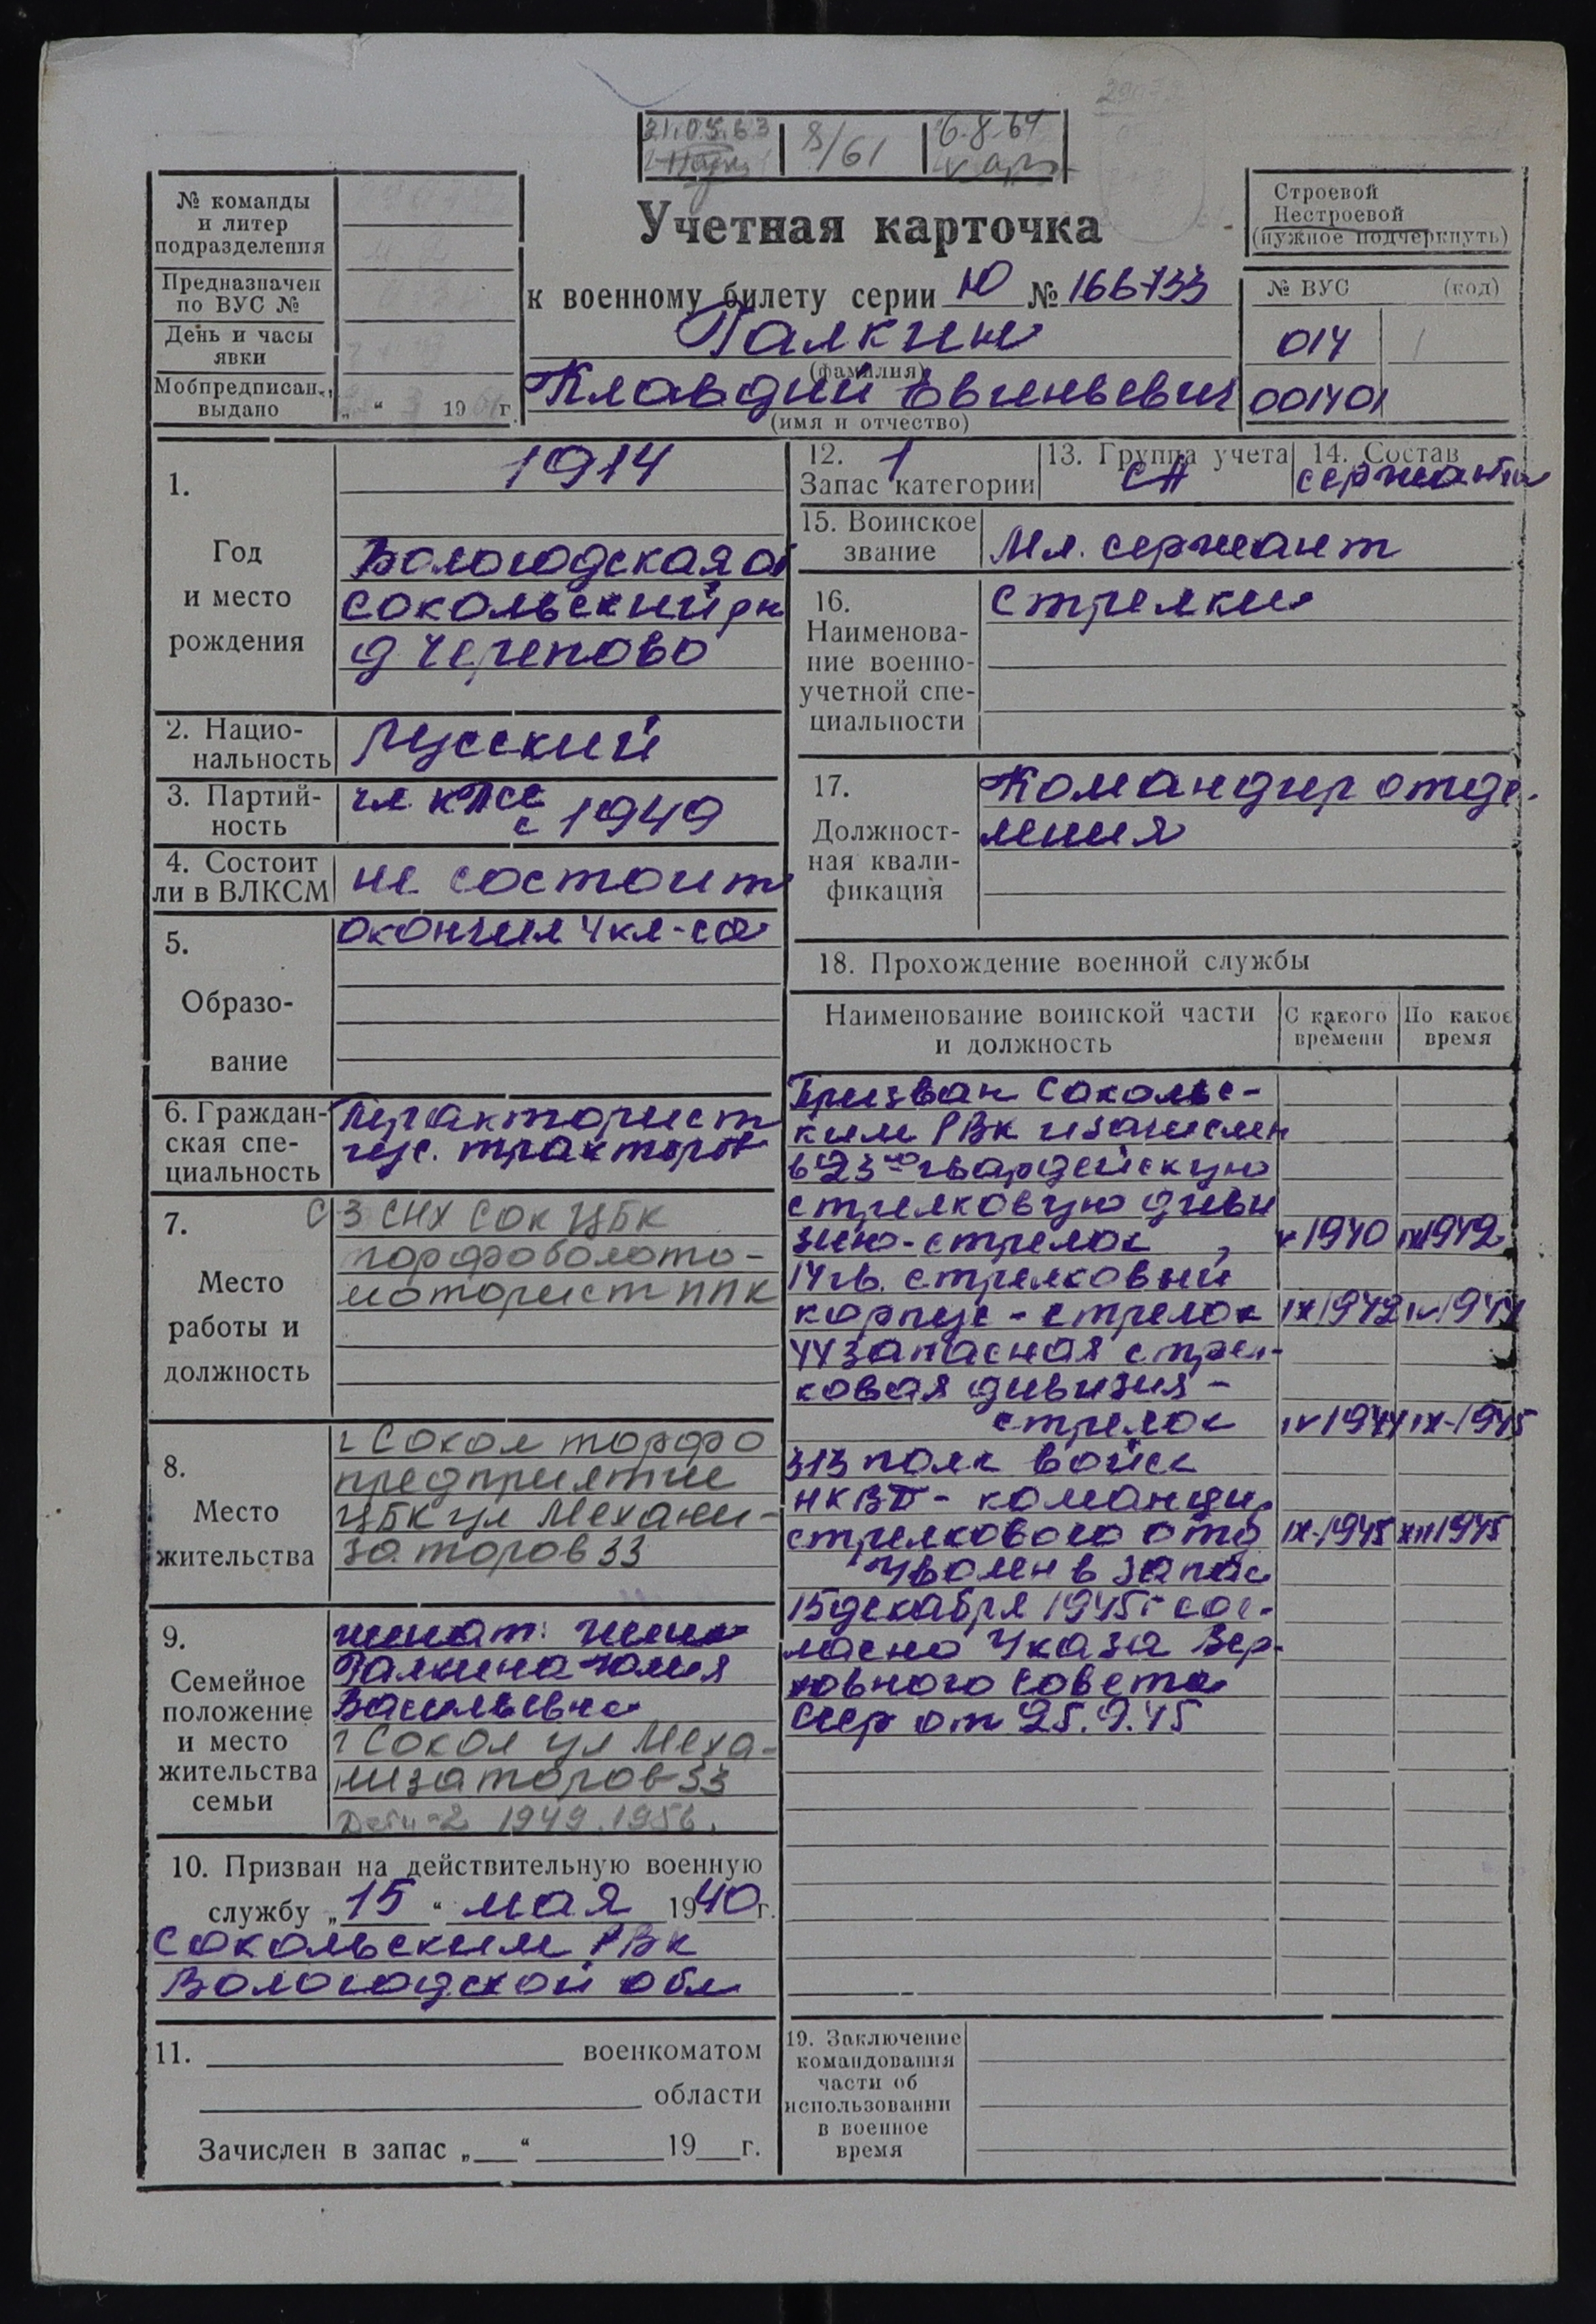 21.05.63
8/61
6.8.64
№ команды
и литер
подразделения
Предназначен
по ВУС №
День и часы
явки
Мобпредписан.,
выдано
„ “ 19 г.
Учетная карточка
к военному билету серии Ю № 166733
Галкин
(фамилия)
Клавдий Евгеньевич
(имя и отчество)
Строевой
Нестроевой
(нужное подчеркнуть)
№ ВУС (код)
014
001401
1.
Год
и место
рождения
1914
Вологодская об
Сокольский рн
д Черепово
2. Нацио-
нальность
Русский
3. Партий-
ность
чл. КПСС
с 1949
4. Состоит
ли в ВЛКСМ
не состоит
5.
Образо-
вание
окончил 4 кл-са
6. Граждан-
ская спе-
циальность
Тракторист
гус. тракторов
7.
Место
работы и
должность
СЗ СНХ Сок ЦБК
торфоболото-
моторист ППК
8.
Место
жительства
г Сокол торфо
предприятие
ЦБК ул Механи-
заторов 33
9.
Семейное
положение
и место
жительства
семьи
женат: жена
Галкина Юлия
Васильевна
г Сокол ул Меха-
низаторов 33
Дети-2 1949. 1956.
10. Призван на действительную военную
службу „15“ мая 1940г.
Сокольским РВК
Вологодской обл
11. военкоматом
области
Зачислен в запас „ “ 19 г.
12. 1
Запас категории
13. Группа учета
СА
14. Состав
сержанты
15. Воинское
звание
Мл. сержант
16.
Наименова-
ние военно-
учетной спе-
циальности
Стрелки
17.
Должност-
ная квали-
фикация
Командир отде-
ления
18. Прохождение военной службы
Наименование воинской части
и должность
С какого
времени
По какое
время
Призван Сокольс-
ким РВК и зачислен
в 23ю гвардейскую
стрелковую диви
зию - стрелок, V 1940 IX 1942
14 гв. стрелковый
корпус - стрелок IX 1942 IV 1944
44 запасная стрел-
ковая дивизия -
стрелок IV 1944 IX-1945
313 полк войск
НКВД - командир
стрелкового отд IX-1945 XII 1945
Уволен в запас
15 декабря 1945 г сог-
ласно Указа Вер-
ховного Совета
СССР от 25.9.45
19. Заключение
командования
части об
использовании
в военное
время